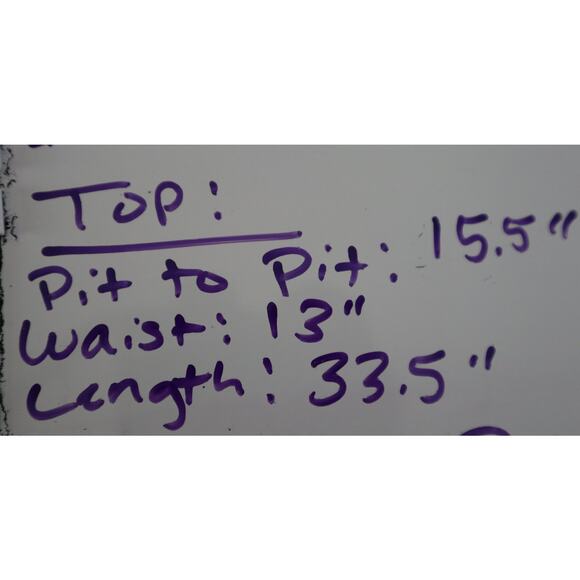 Top:
Pit to Pit: 15.5"
Waist: 13"
Length: 33.5"